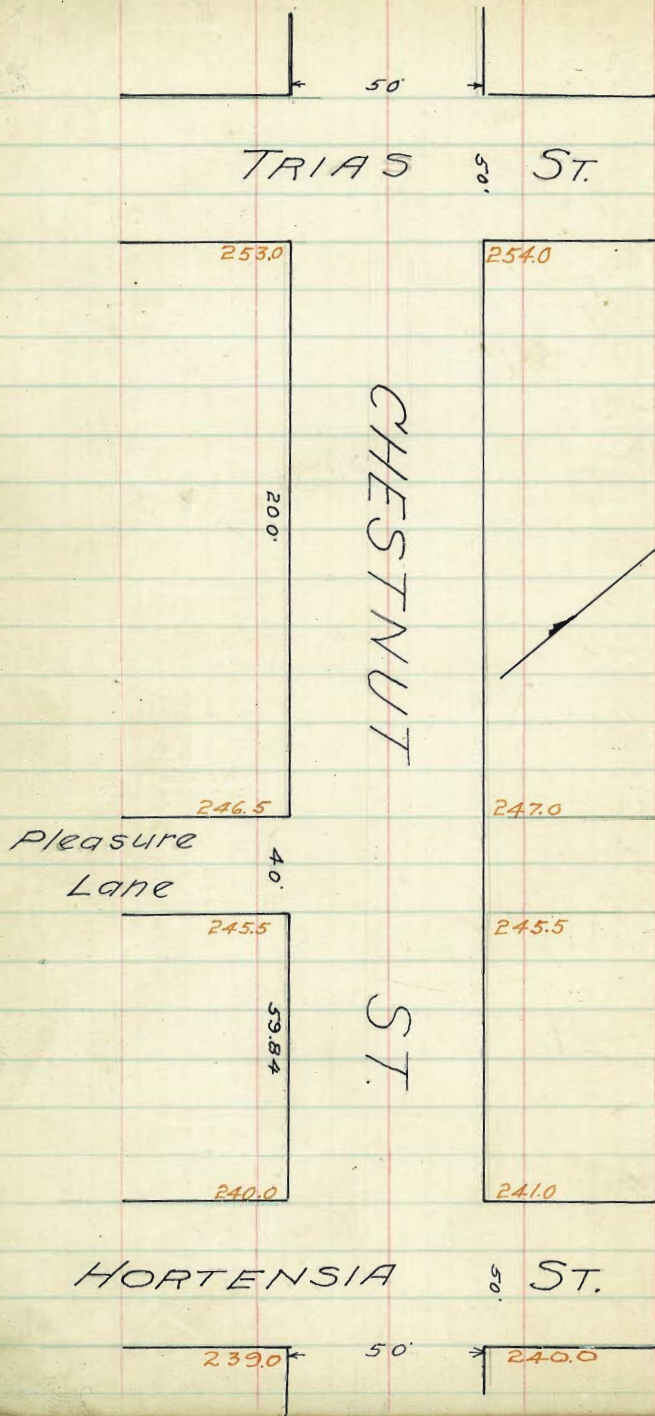 50'
TRIAS 50' ST.
253.0 254.0
CHESTNUT
200'
246.5 247.0
Pleasure
Lane
40'
245.5 245.5
59.84
ST.
240.0 241.0
HORTENSIA 50' ST.
239.0 50' 240.0